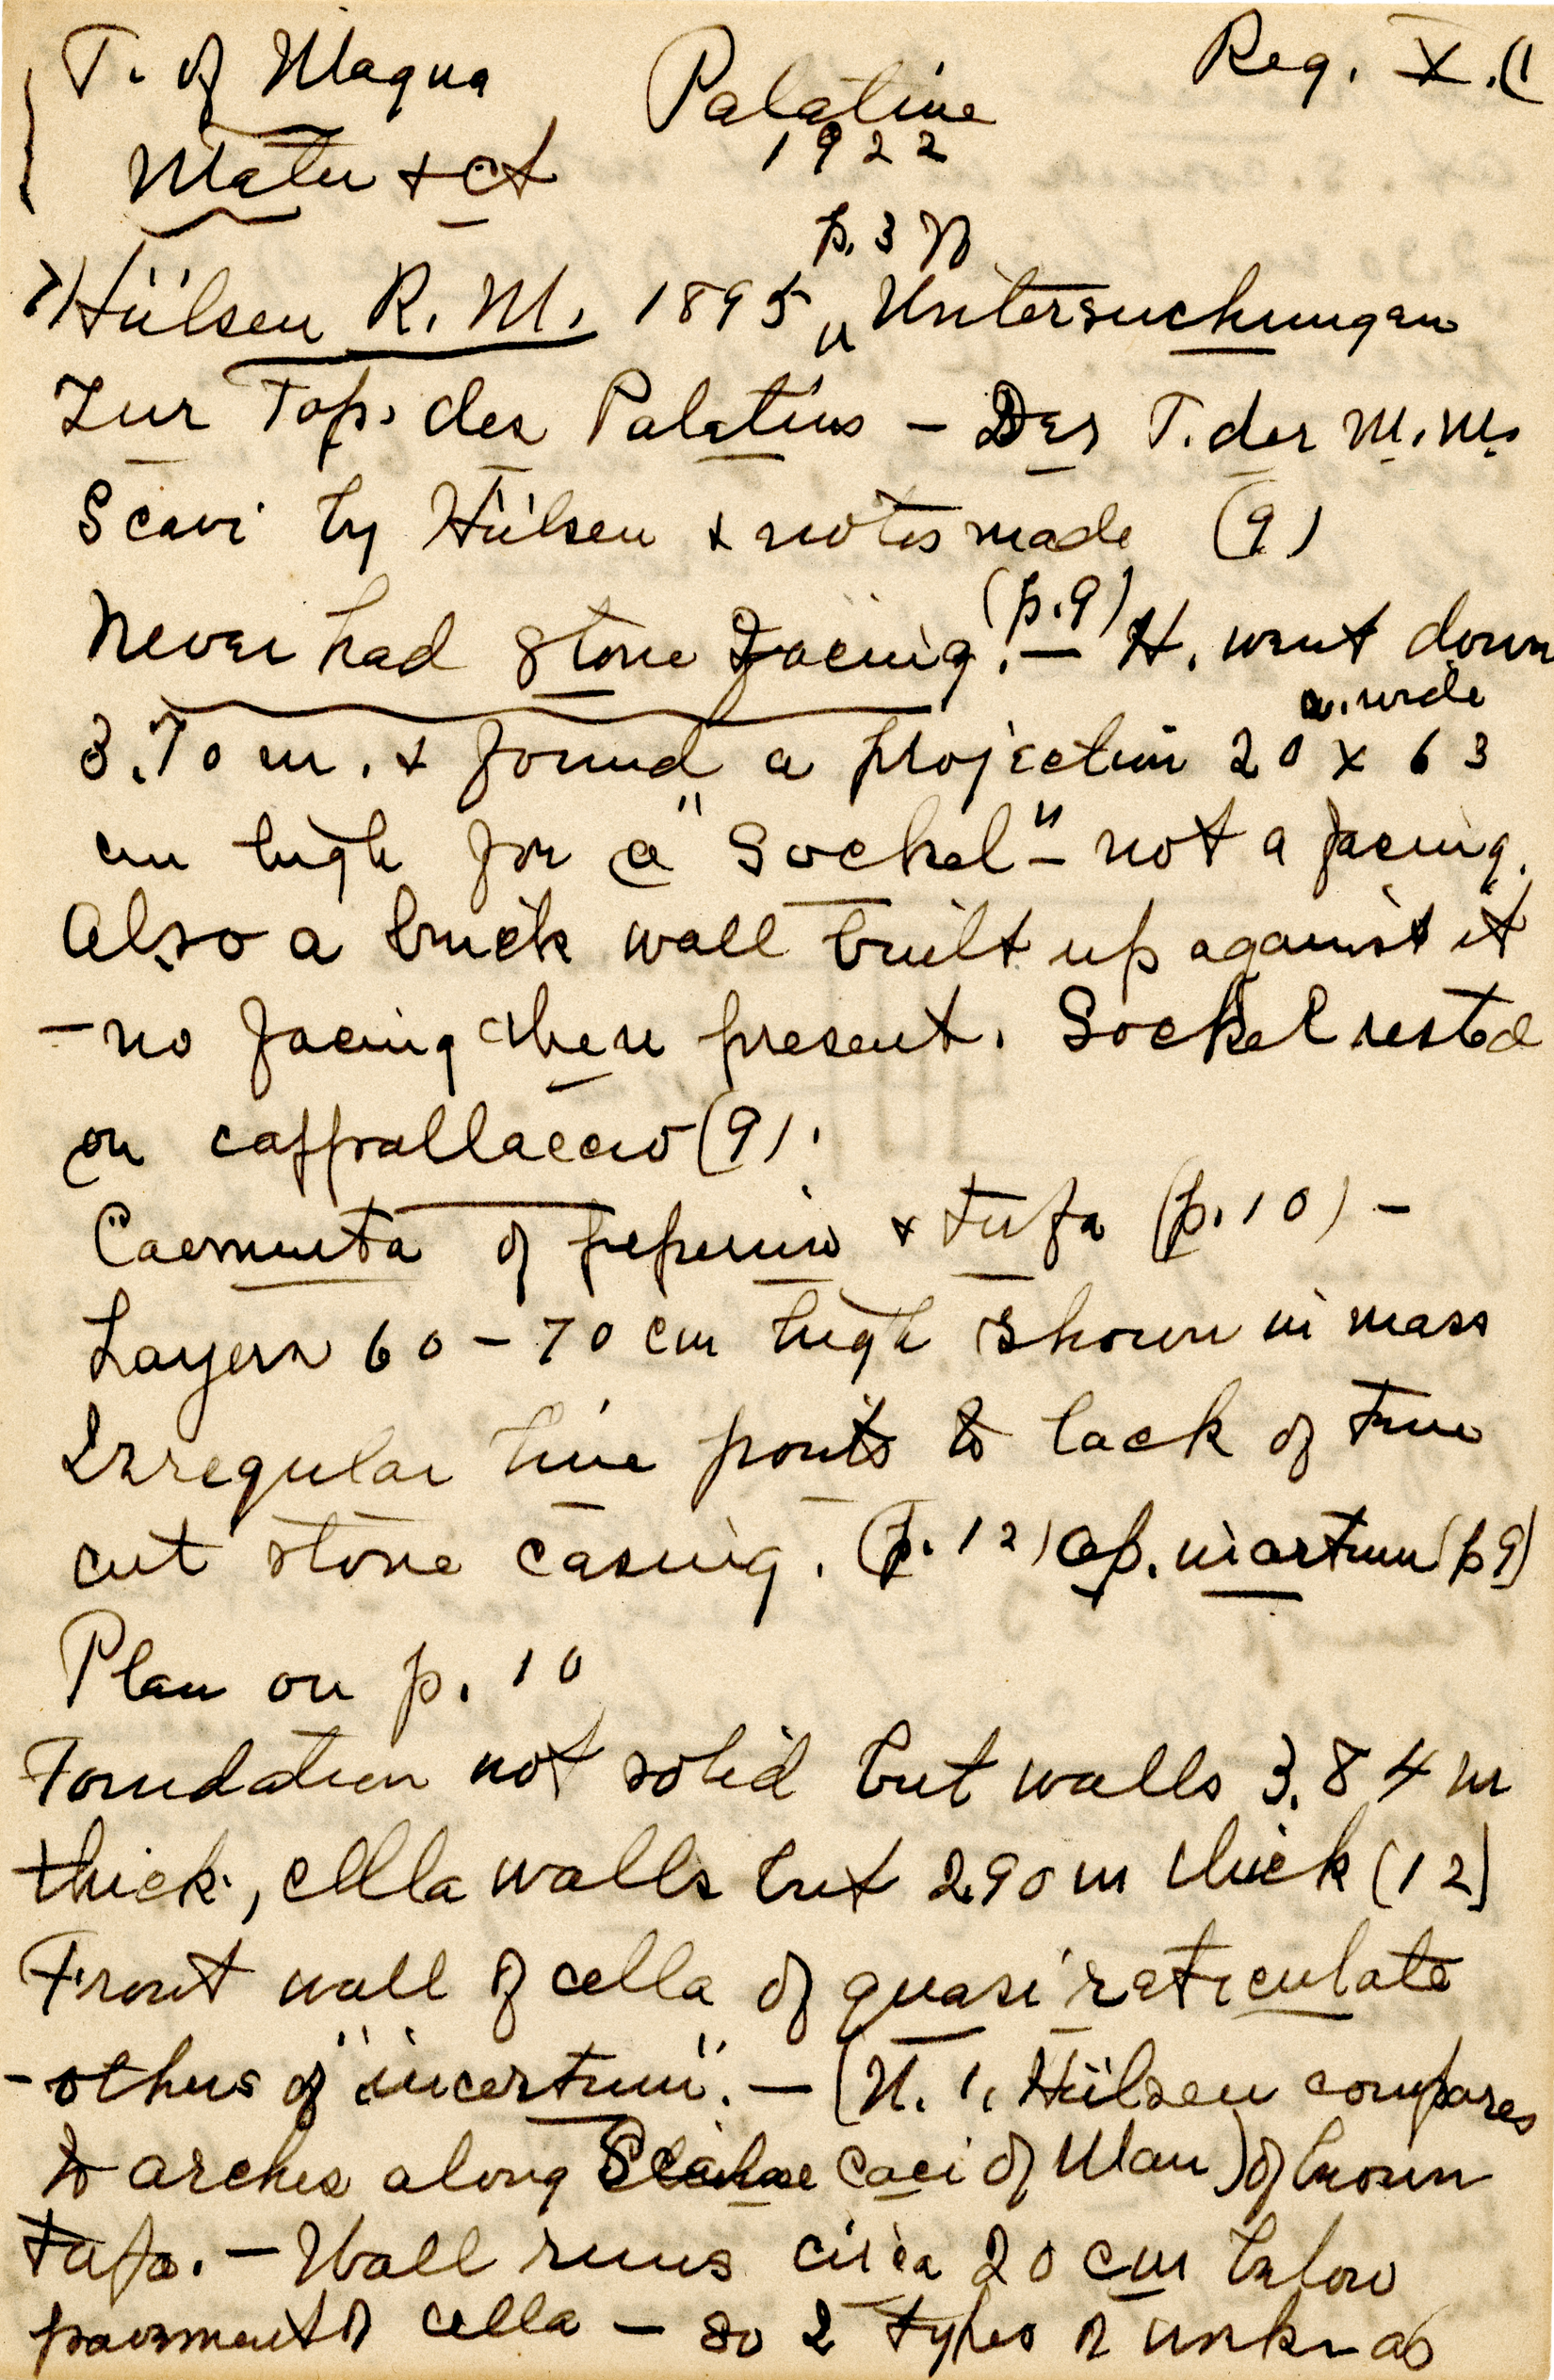 T. of Magna Palatine Reg. X.
Mater + ct 1922
p. 3 ff
Hülsen R. M. 1895 „Untersuchungen
Zur Top. des Palatins – Der T. der M.M.
Scavi by Hülsen + notes made (9)
Never had stone facing. (p.9) — H. went down
3.70 m. + found a projection 20 wide x 63
cm high for a "Sockel" – not a facing.
Also a brick wall built up against it
– no facing then present. Sockel rested
on cappallaccio (9).
Caementa of peperino + tufa (p. 10) –
Layers 60 – 70 cm high shown in mass
Irregular line points to lack of true
cut stone casing. (p. 12) op. incertum (p 9)
Plan on p. 10
Foundation not solid but walls 3.84 m
thick, cella walls but 2.90 m thick (12)
Front wall of cella of quasi reticulate
– others of "incertum". — (N. 1, Hülsen compares
to arches along Scalae Caci of Mau) of brown
tufa. – Wall runs circa 20 cm below
pavement of cella – so 2 types of work as